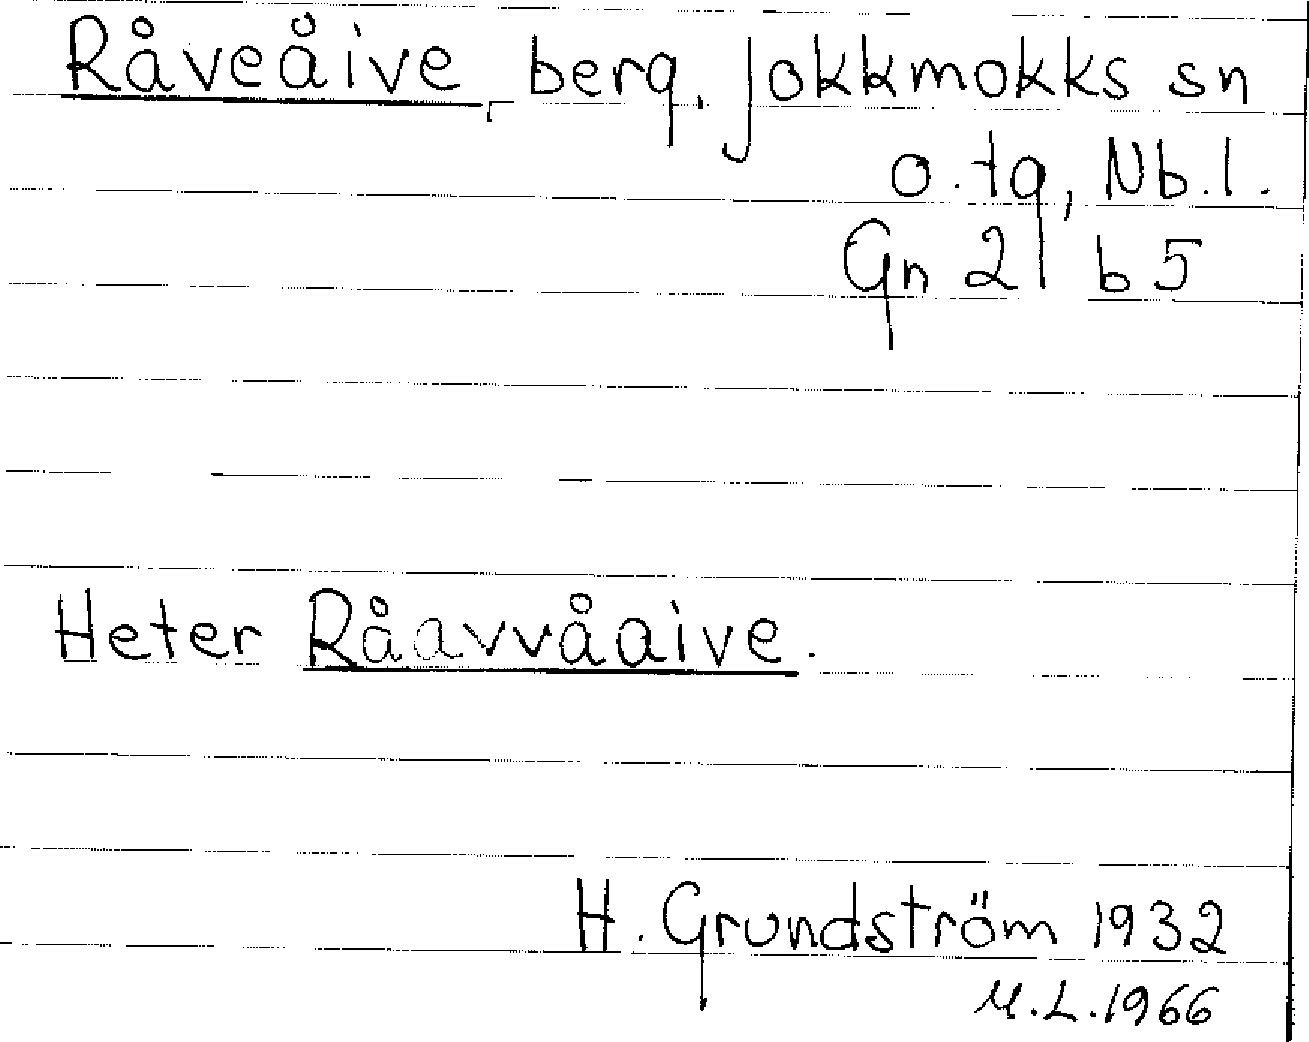 Råveåive, berg, Jokkmokks sn
o. tg, Nb. l.
Gn 21 b 5
Heter Råavvåaive.
H. Grundström 1932
M.L. 1966